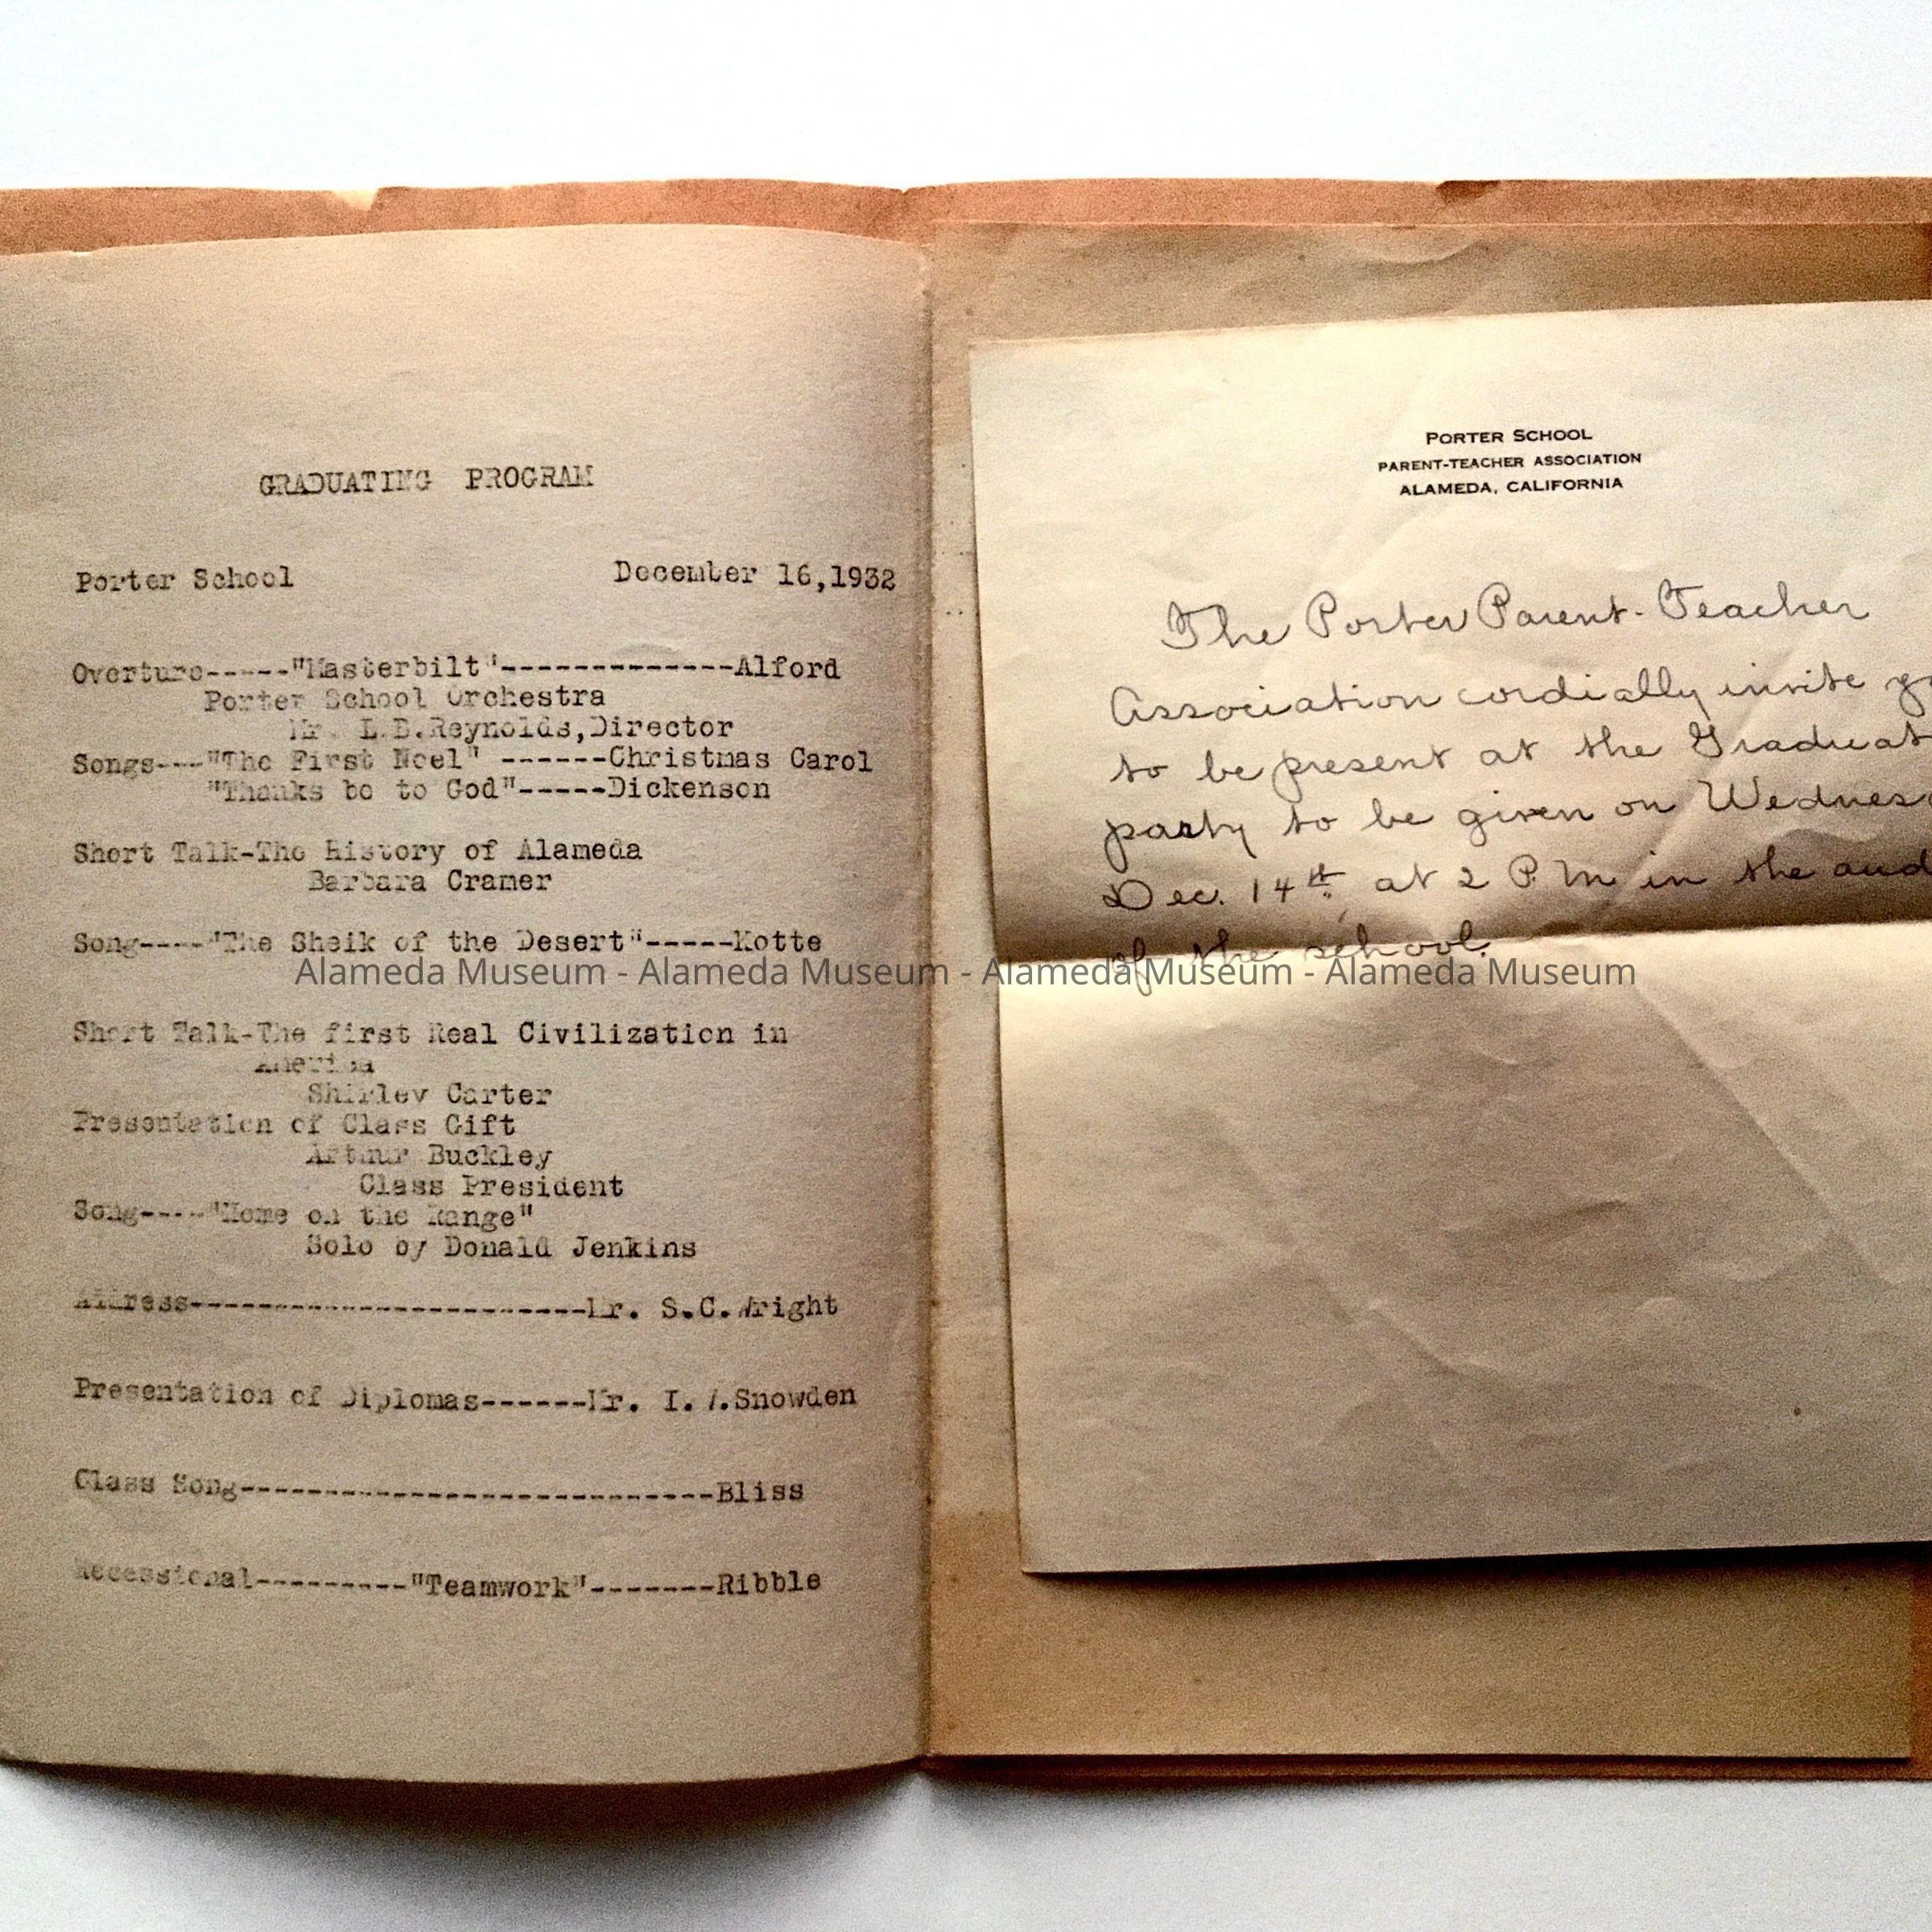 GRADUATING PROGRAM
Porter School December 16,1932
Overture-----"Masterbilt"-------------Alford
Porter School Orchestra
Mr. L.B.Reynolds,Director
Songs---"The First Noel" ------Christmas Carol
"Thanks be to God"-----Dickenson
Short Talk-The History of Alameda
Barbara Cramer
Song----"The Sheik of the Desert"-----Kotte
Short Talk-The first Real Civilization in
America
Shirley Carter
Presentation of Class Gift
Arthur Buckley
Class President
Song----"Home on the Range"
Solo by Donald Jenkins
Address------------------------Mr. S.C.Wright
Presentation of Diplomas------Mr. I. .Snowden
Class Song-----------------------------Bliss
Recessional---------"Teamwork"-------Ribble
PORTER SCHOOL
PARENT-TEACHER ASSOCIATION
ALAMEDA, CALIFORNIA
The Porter Parent-Teacher
Association cordially invite
to be present at the Graduat
party to be given on Wednes
Dec. 14th at 2 P.M in the aud
of the school.
Alameda Museum - Alameda Museum - Alameda Museum - Alameda Museum